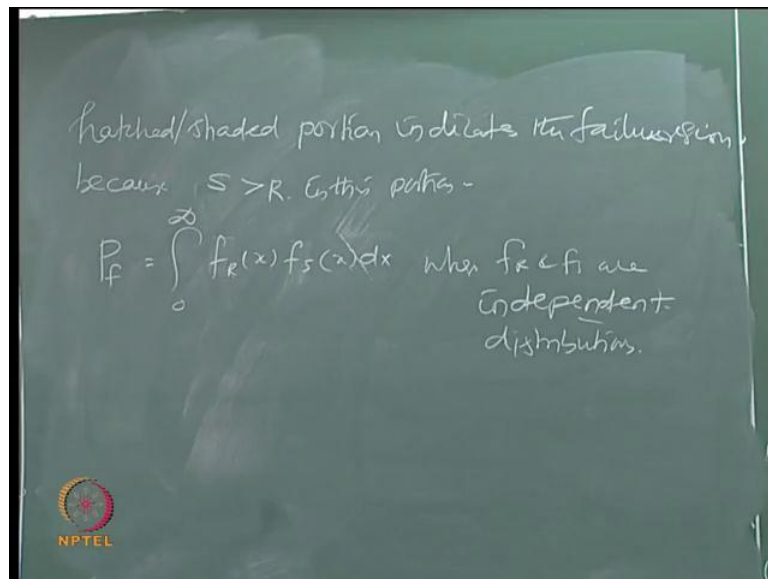 hatched/shaded portion indicates the failure region.
because S > R. in this portion -
P_f = ∫_0^∞ f_R(x) f_S(x) dx when f_R & f_s are
independent
distributions.
NPTEL